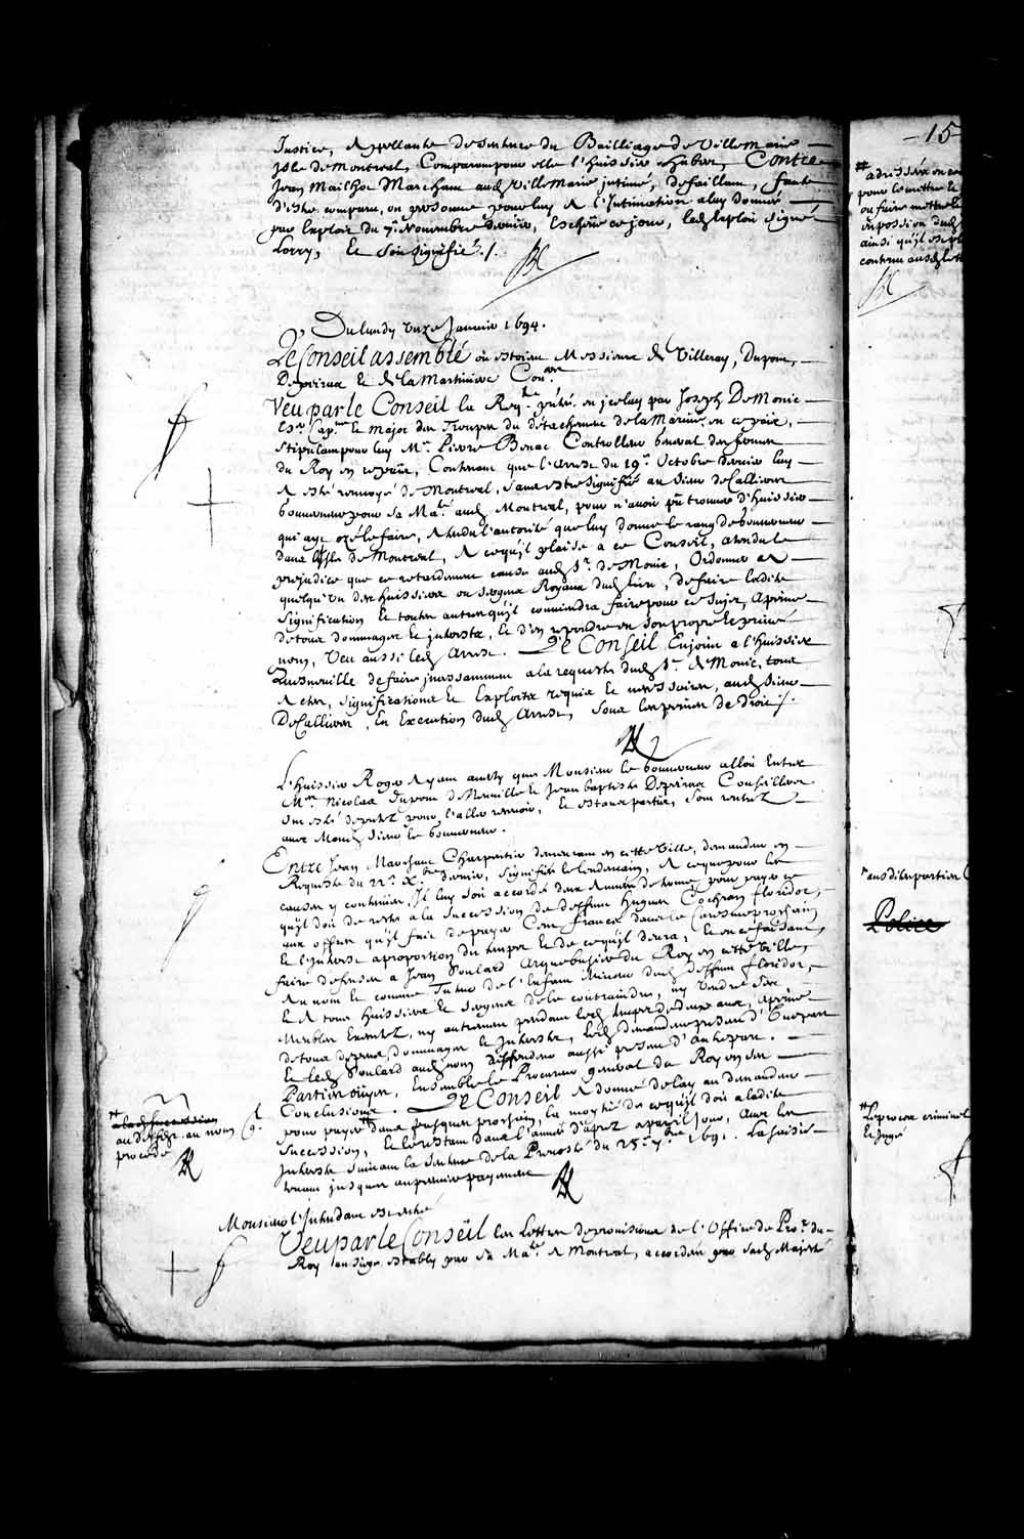 Justice, Appellante de sentence du Bailliage de Villemarie
Isle de Montreal, Comparant pour elle l'huissier hubert, Contre
Jean Mailhot Marchant aud. Villemarie intimé, defaillant, faute
d'estre comparu, ou personne pour luy A l'Intimation a luy donnée
par Exploit du 7e. Novembre dernier, Escheüe ce jour, led. Exploit signé
Lorry, Et Soit signifié ./.
Du lundy unze Janvier 1694.
Le Conseil assemblé où estoient Messieurs de Villeray, Dupont,
Depeiras Et de la Martiniere Coners.
Veu par le Conseil la Reqte. pñtée. en iceluy par Joseph De Monic
Esr. Capne. Et Major des Trouppes du détachement de la Marine en ce païs,
Stipulant pour luy Me. Pierre Benac Controlleur general des fermes
du Roy en ce païs, Contenant que l'arrest du 19e. Octobre dernier luy
A esté renvoyé de Montreal, sans estre signiffié au Sieur de Callieres
Gouverneur pour Sa Maté. aud. Montreal, pour n'avoir pû trouver d'huissier
qui ayt ozé le faire, Attendu l'autorité que luy donne le rang de Gouverneur
dans l'Isle de Montreal, A ce qu'il plaise a ce Conseil, attendu le
prejudice que ce retardement cause aud. Sr. de Monic, Ordonner a
quelqu'un des huissiers ou Sergens Royaux dud. lieu, de faire ladite
signification Et toutes autres qu'il conviendra faire pour ce sujet, a peine
de tous dommages Et interests, Et d'en repondre en son propre Et privé
nom, Veu aussi led. Arrest. Le Conseil Enjoint a l'huissier
Quesneville de faire incessamment a la requeste dud. Sr. de Monic, tous
Actes, significations Et Exploits requis Et necessaires, aud. Sieur
De Callieres, En Execution dud. Arrest, Sous les peines de Droit ./.
L'huissier Roger Ayant averty que Monsieur le Gouverneur alloit Entrer
Mes. Nicolas Dupont de Neuville Et Jean baptiste Depeiras Conseillers
Ont esté deputez pour l'aller recevoir, Et estans partis, sont rentrez
avec Mond. Sieur le Gouverneur.
Entre Jean Marchant Charpentier demeurant en cette Ville, demandeur en
Requeste du 22e. Xbre dernier, signifiée le lendemain, A ce que pour les
causes y contenües, Il luy soit accordé deux Années de temps pour payer ce
qu'il doit de reste a la Succession de deffunt Hugues Cochran floridor,
aux offres qu'il fait de payer Cent francs dans le Caresme prochain
Et l'Interest a proportion du temps Et de ce qu'il devra, Et en ce faisant,
faire deffenses a Jean Soulard Arquebusier du Roy en cette Ville,
Au nom Et comme Tuteur de l'Enfant Mineur dud. deffunt floridor,
Et A tous huissiers Et Sergens de le contraindre, ny vendre ses
Meubles Executez, ny autrement pendant led. temps de deux ans, a peine
de tous despens, Dommages Et Interests, led. demandeur present d'Une part
Et led. Soulard aud. nom deffendeur aussi present d'autre part.
Parties oüyes, Ensemble le Procureur general du Roy en ses
Conclusions. Le Conseil A donné delay au demandeur
pour payer dans pasques prochain, la moytié de ce qu'il doit a ladite
Succession, Et le restant dans l'année d'apres a pareil jour, avec les
Interests suivant la Sentence de la Prevosté du 25e. 7bre 1691. La saisie
tenant jusques au premier payement
Monsieur l'Intendant est entré
Veu par le Conseil les Lettres de provisions de l'Office de Pror. du
Roy au siege estably par sa Maté. A Montreal, accordées par Sad. Majesté
15
pour le mettre
ou faire mettre
en possession dud.
ainsi qu'il est
contenu ausd.
Police
Le procez criminel